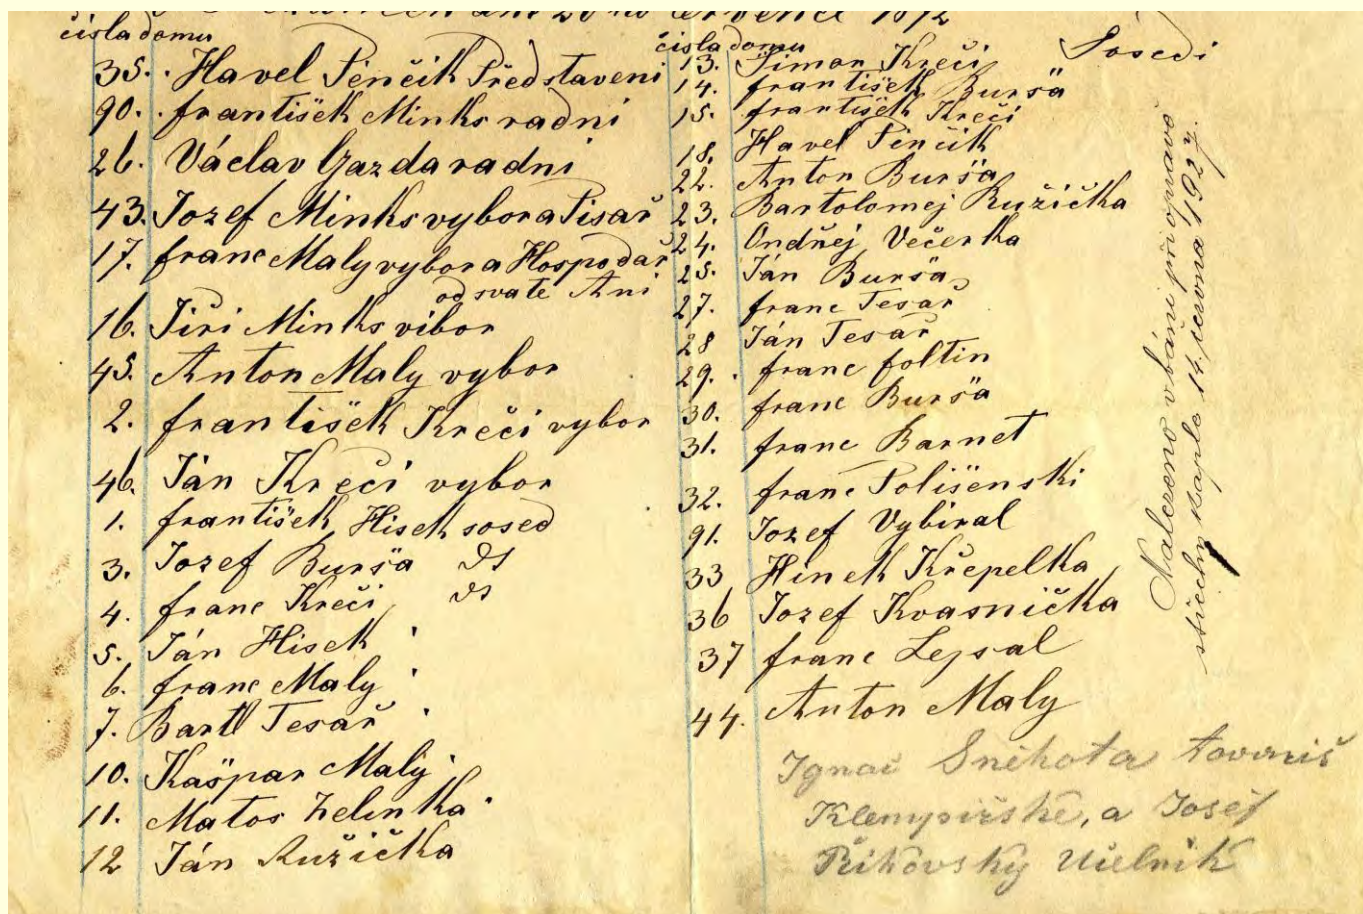 dne 20ho července 1872
čísla domu
35. Havel Pénčik Představeni
90. františek Minks radni
26. Václav Gazda radni
43. Jozef Minks vybor a Pisař
17. franc Maly vybor a Hospodař
od svate Ani
16. Jiři Minks vibor
45. Anton Maly vybor
2. františek Krečí vybor
46. Ján Krečí vybor
1. františek Hisek sosed
3. Jozef Burša
4. franc Kreči
5. Ján Hisek
6. franc Maly
7. Bartl Tesař
10. Kašpar Malý
11. Matos Zelinka
12 Ján Ružička
čísla domu
Sosedi
13. Šimon Kreči
14. františek Burša
15. františek Kreči
18. Havel Pénčik
22. Anton Burša
23. Bartolomej Ružička
24. Ondřej Večerka
25. Ján Burša
27. franc Tesař
28 Ján Tesař
29. franc foltin
30. franc Burša
31. franc Barnet
32. franc Polišenski
91. Jozef Vybiral
33 Hinek Křepelka
36 Jozef Kvasnička
37 franc Lejsal
44. Anton Maly
Ignac Sněhota tovariš
Klempiřské, a Josef
Řikovský Učelnik
Nalezeno v báni při opravě
střechy kaple 14. června 1927.